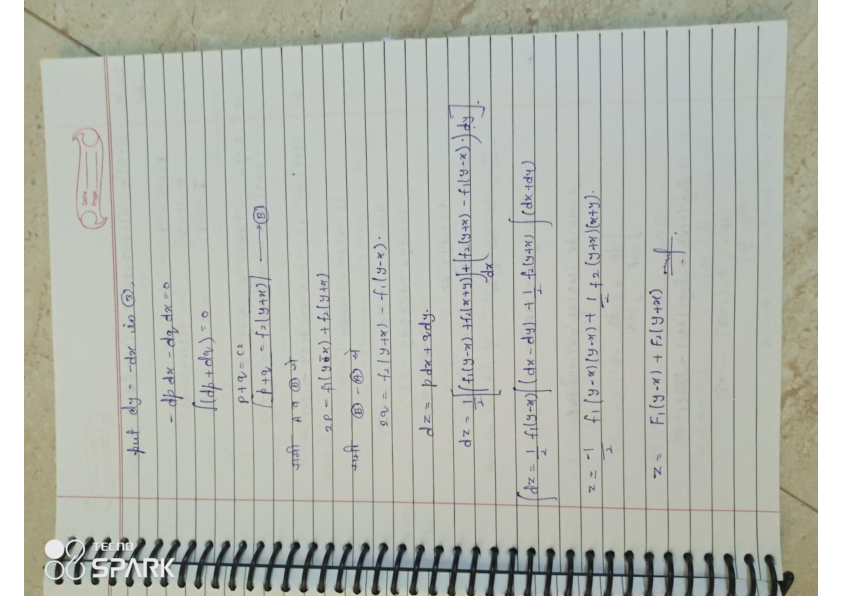 Date
Page
put dy = -dx in ②,
- dp dx - dq dx = 0
∫(dp + dq) = 0
p + q = c2
[p + q = f2(y+x)] ⟶ Ⓑ
A व Ⓑ से
2p = f1(y-x) + f2(y+x)
Ⓑ - Ⓐ से
2q = f2(y+x) - f1(y-x).
dz = p dx + q dy.
dz = 1/2 [(f1(y-x) + f2(x+y)) dx + (f2(y+x) - f1(y-x).) dy].
∫dz = 1/2 f1(y-x) ∫(dx - dy) + 1/2 f2(y+x) ∫(dx + dy)
z = -1/2 f1(y-x)(y-x) + 1/2 f2(y+x)(x+y).
z = F1(y-x) + F2(y+x)
TECNO
SPARK